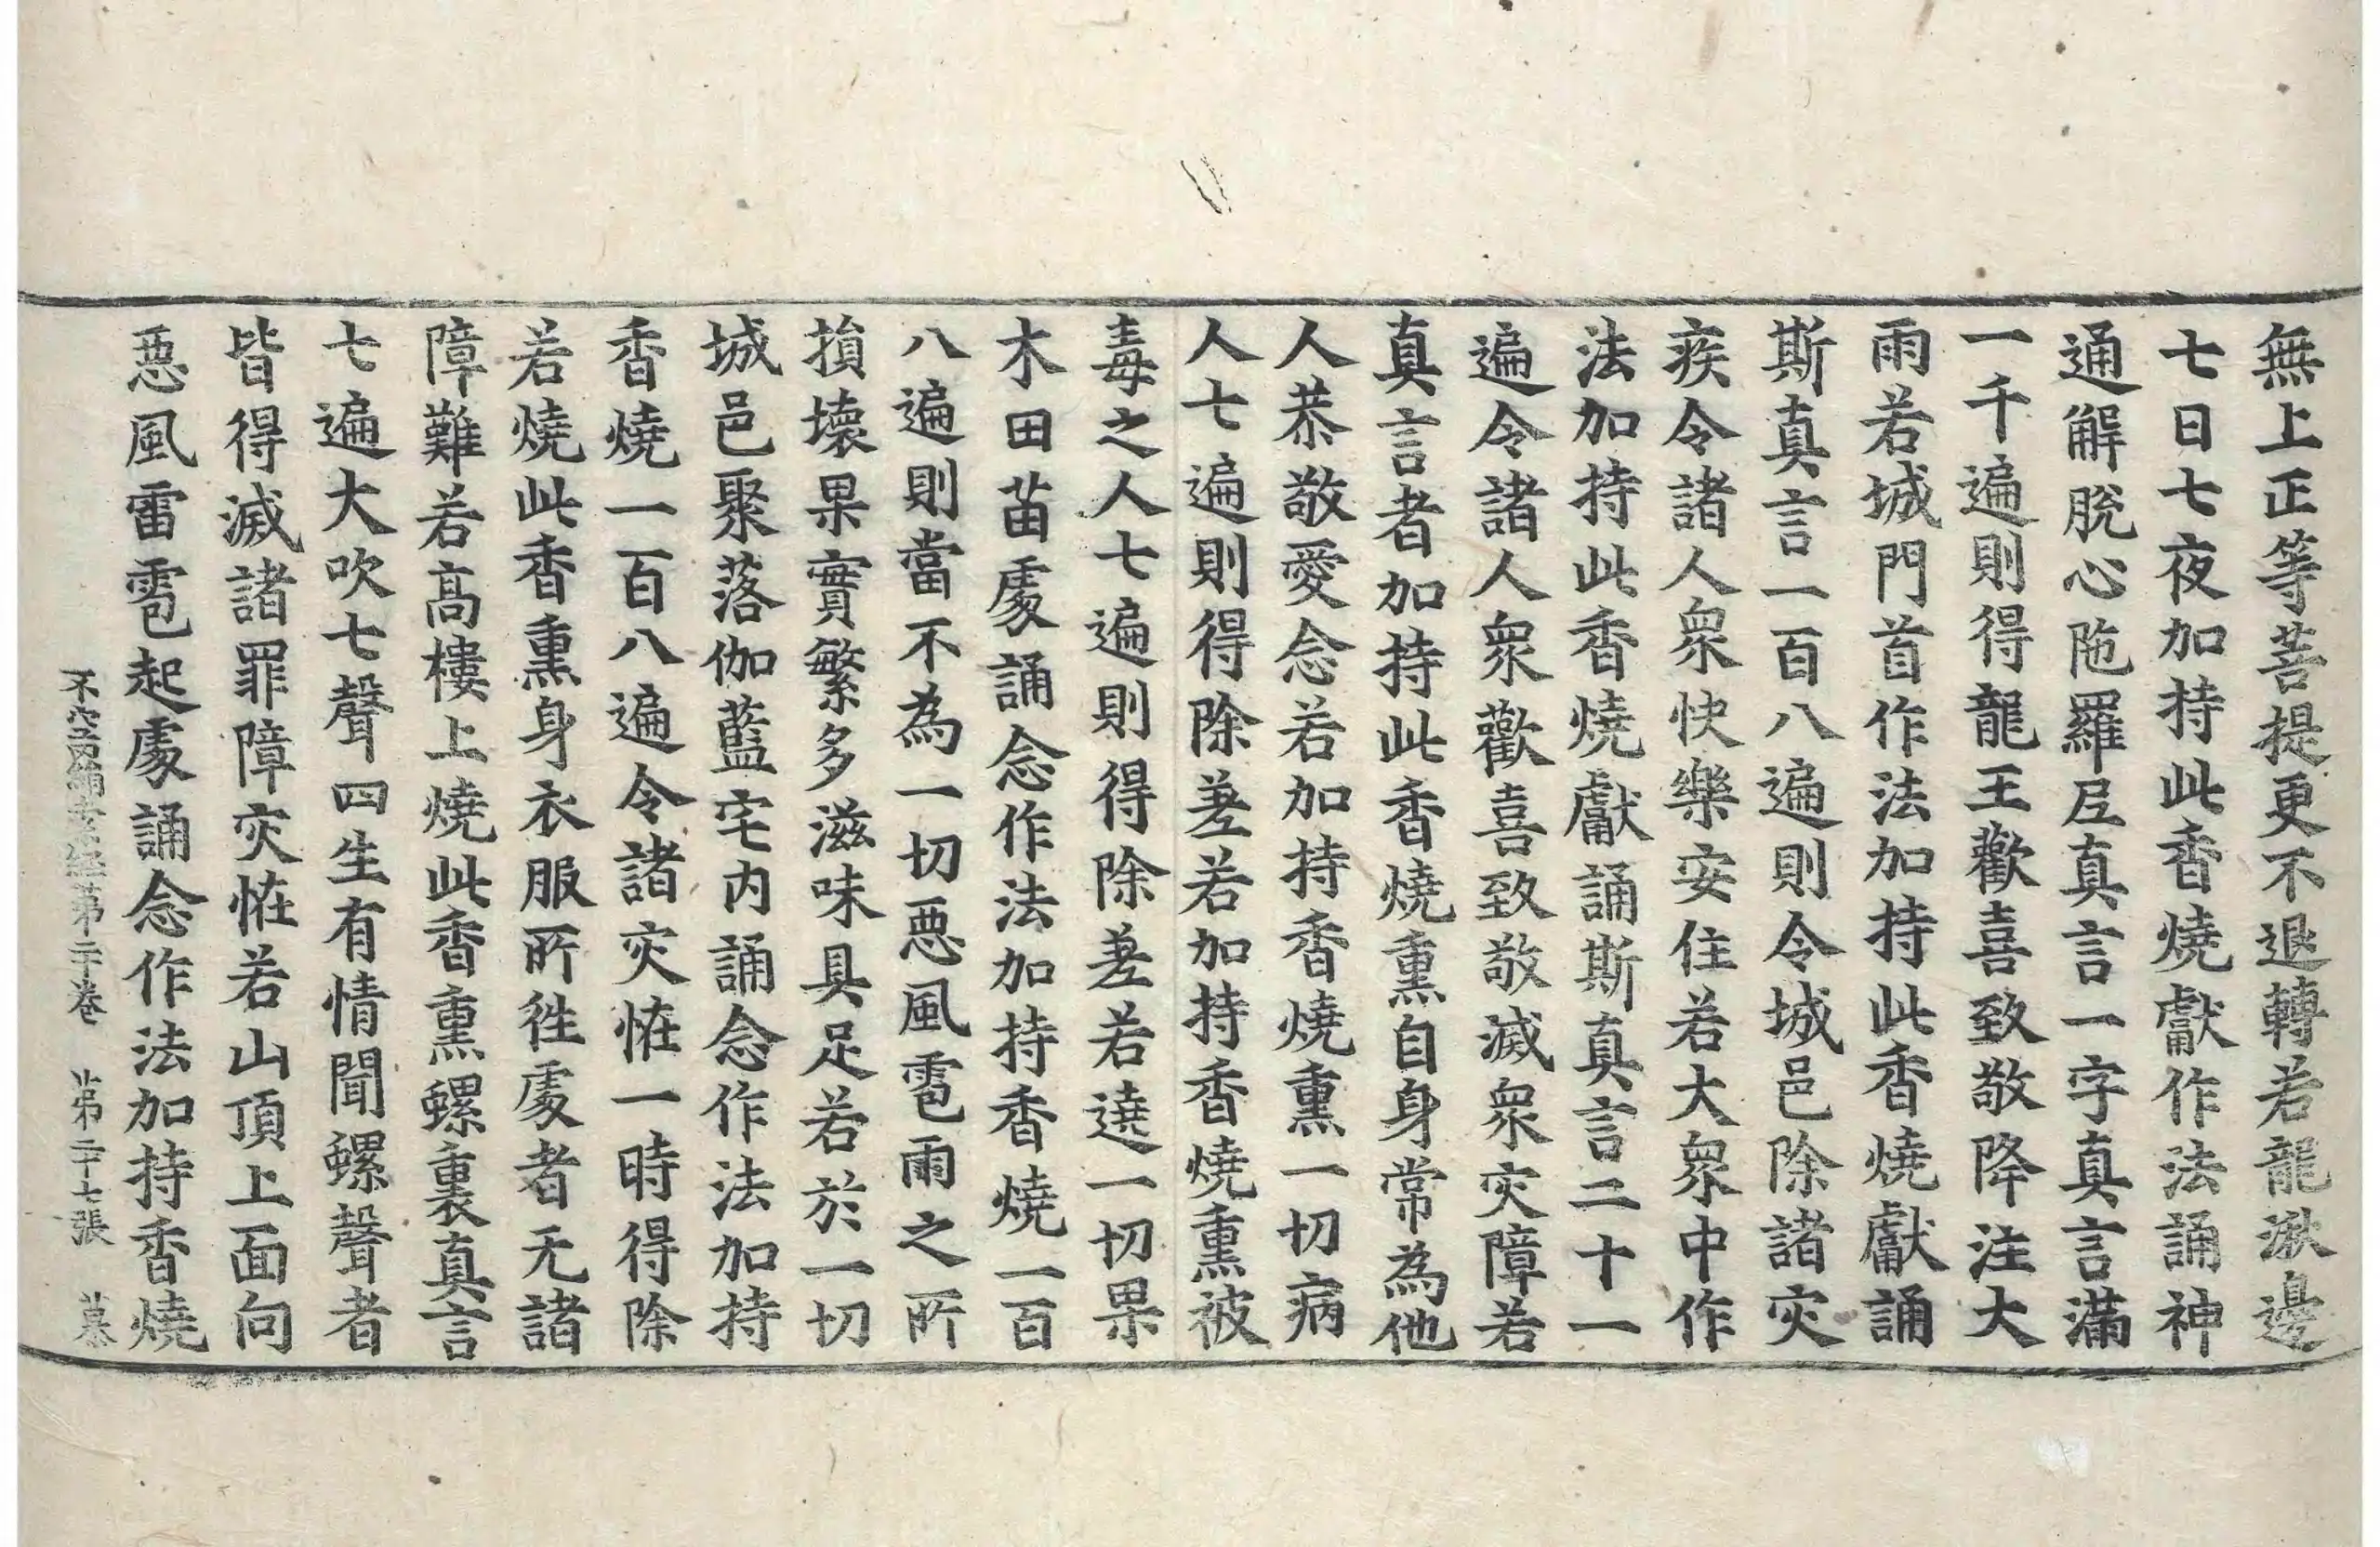 無上正等菩提更不退轉若龍湫邊
七日七夜加持此香燒獻作法誦神
通解脫心陁羅尼真言一字真言滿
一千遍則得龍王歡喜致敬降注大
雨若城門首作法加持此香燒獻誦
斯真言一百八遍則令城邑除諸灾
疾令諸人衆快樂安住若大衆中作
法加持此香燒獻誦斯真言二十一
遍令諸人衆歡喜致敬滅衆灾障若
真言者加持此香燒熏自身常為他
人恭敬愛念若加持香燒熏一切病
人七遍則得除差若加持香燒熏被
毒之人七遍則得除差若遶一切果
木田苗處誦念作法加持香燒一百
八遍則當不為一切惡風雹雨之所
損壞果實繁多滋味具足若於一切
城邑聚落伽藍宅內誦念作法加持
香燒一百八遍令諸灾恠一時得除
若燒此香熏身衣服所徃處者无諸
障難若高樓上燒此香熏螺裏真言
七遍大吹七聲四生有情聞螺聲者
皆得滅諸罪障灾恠若山頂上面向
惡風雷雹起處誦念作法加持香燒
不空羂索經第二十卷　第二十七張　慕